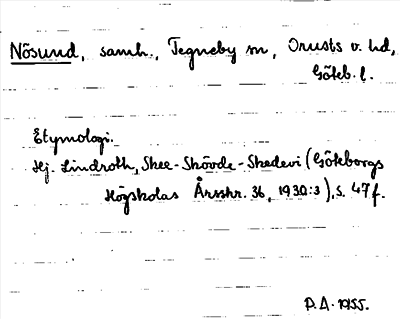 Nösund, samh., Tegneby sn, Orusts v. hd,
Göteb. l.
Etymologi.
Hj. Lindroth, Skee-Skövde-Skedevi (Göteborgs
Högskolas Årsskr. 36, 1930:3), s. 47 f.
P.A. 1955.